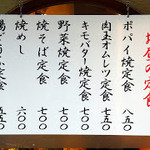 昼の定食
ポパイ焼定食 八五〇
肉玉オムレツ定食 七五〇
キモバター焼定食 七〇〇
野菜焼定食 七〇〇
焼そば定食 七〇〇
焼めし 六〇〇
定食 五五〇